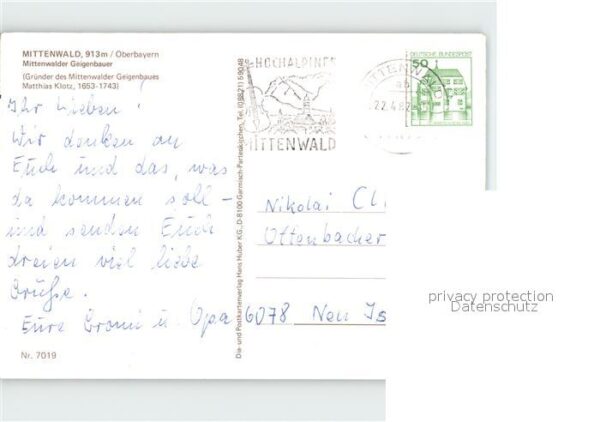 MITTENWALD, 913m / Oberbayern
Mittenwalder Geigenbauer
(Gründer des Mittenwalder Geigenbaues
Matthias Klotz, 1653-1743)
Ihr Lieben!
Wir denken an
Euch und das, was
da kommen soll -
und senden Euch
dreien viel liebe
Grüße.
Eure Oomi u. Opa
Nr. 7019
Die- und Postkartenverlag Hans Huber KG., D-8100 Garmisch-Partenkirchen, Tel. (08821) 59048
HOCHALPINES
MITTENWALD
MITTENWALD
22.4.82
50
DEUTSCHE BUNDESPOST
Nikolai Cl
Ottenbacher
6078 Neu Is
privacy protection
Datenschutz